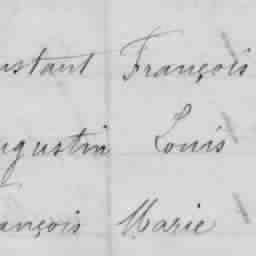 ustant François
ugustin Louis
ançois Marie